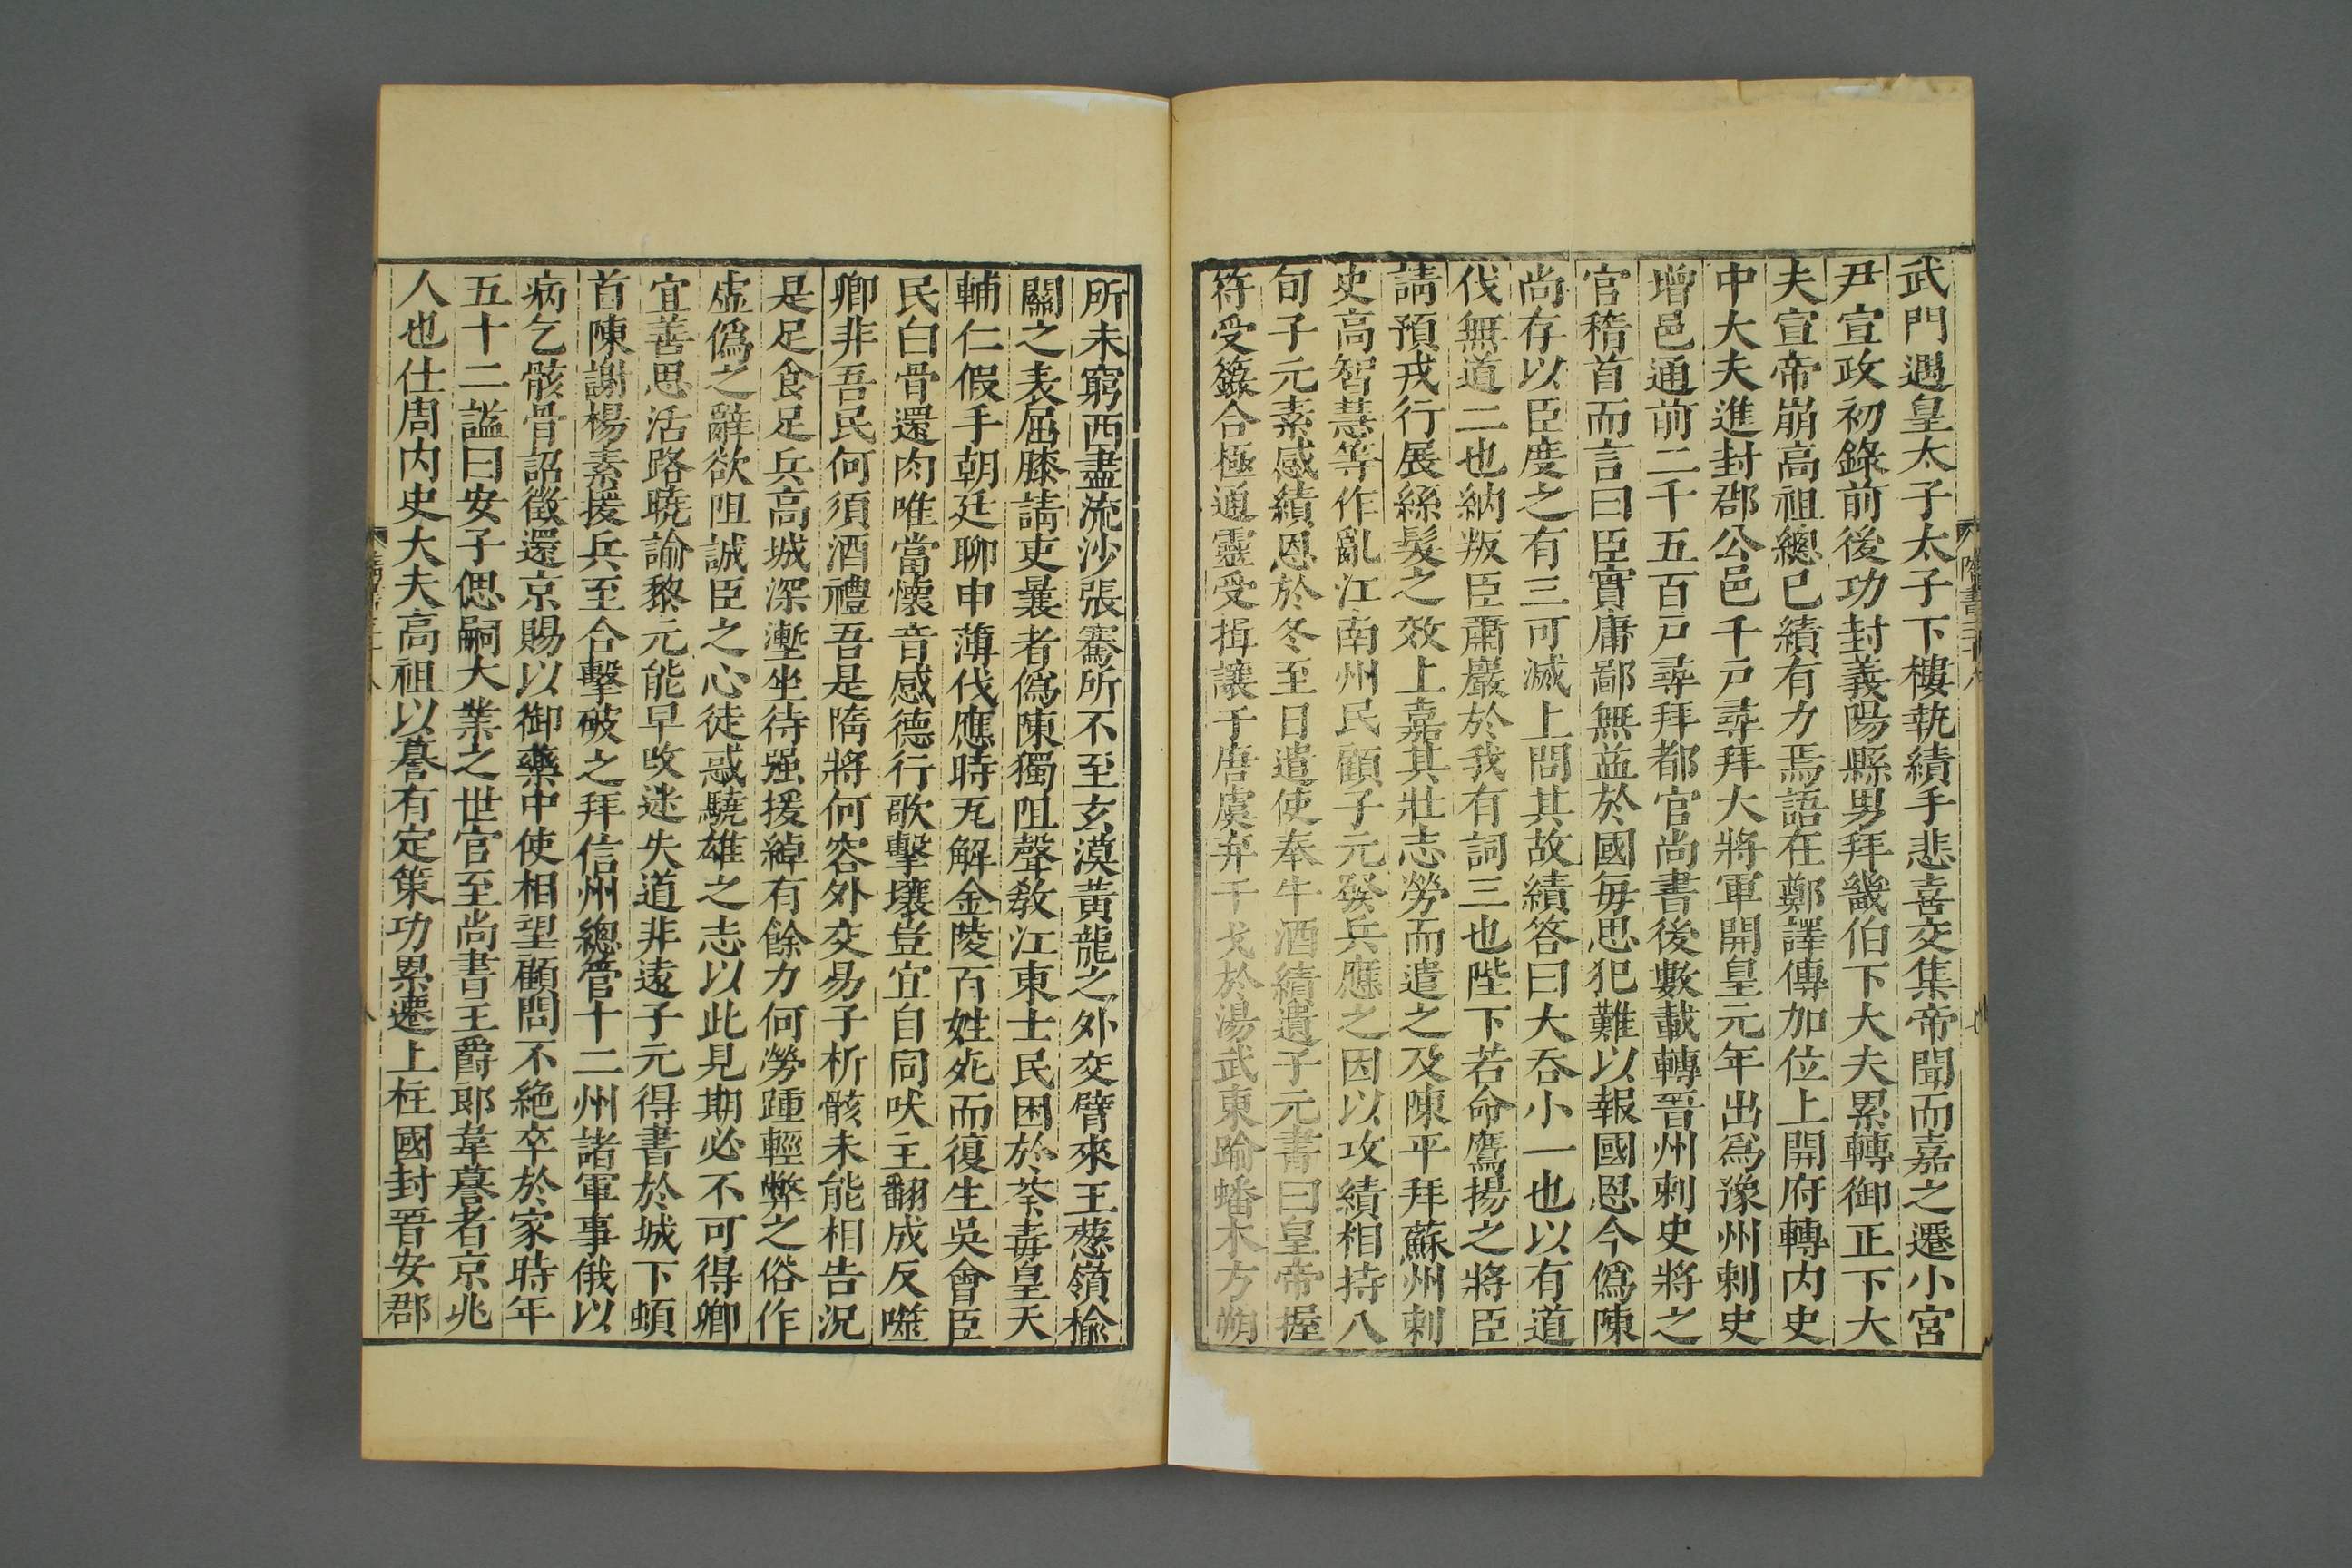 武門遇皇太子太子下樓執績手悲喜交集帝聞而嘉之遷小宮
尹宣政初錄前後功封義陽縣男拜畿伯下大夫累轉御正下大
夫宣帝崩高祖總己績有力焉語在鄭譯傳加位上開府轉內史
中大夫進封郡公邑千戸尋拜大將軍開皇元年出爲豫州刺史
增邑通前二千五百戸尋拜都官尚書後數載轉晉州刺史將之
官稽首而言曰臣實庸鄙無益於國每思犯難以報國恩今僞陳
尚存以臣度之有三可滅上問其故績答曰大吞小一也以有道
伐無道二也納叛臣蕭巖於我有詞三也陛下若命鷹揚之將臣
請預戎行展絲髮之效上嘉其壯志勞而遣之及陳平拜蘇州刺
史高智慧等作亂江南州民顧子元發兵應之因以攻績相持八
旬子元素感績恩於冬至日遣使奉牛酒績遺子元書曰皇帝握
符受籙合極通靈受揖讓于唐虞弃干戈於湯武東踰蟠木方朔
所未窮西盡流沙張騫所不至玄漠黃龍之外交臂來王葱嶺榆
關之表屈膝請吏曩者僞陳獨阻聲教江東士民困於荼毒皇天
輔仁假手朝廷聊申薄伐應時瓦解金陵百姓死而復生吳會臣
民白骨還肉唯當懷音感德行歌擊壤豈宜自同吠主翻成反噬
卿非吾民何須酒禮吾是隋將何容外交易子析骸未能相告況
是足食足兵高城深塹坐待强援綽有餘力何勞踵輕弊之俗作
虛僞之辭欲阻誠臣之心徒惑驍雄之志以此見期必不可得卿
宜善思活路曉諭黎元能早改迷失道非遠子元得書於城下頓
首陳謝楊素援兵至合擊破之拜信州總管十二州諸軍事俄以
病乞骸骨詔徵還京賜以御藥中使相望顧問不絶卒於家時年
五十二謚曰安子偲嗣大業之世官至尚書主爵郎韋謩者京兆
人也仕周內史大夫高祖以謩有定策功累遷上柱國封晉安郡